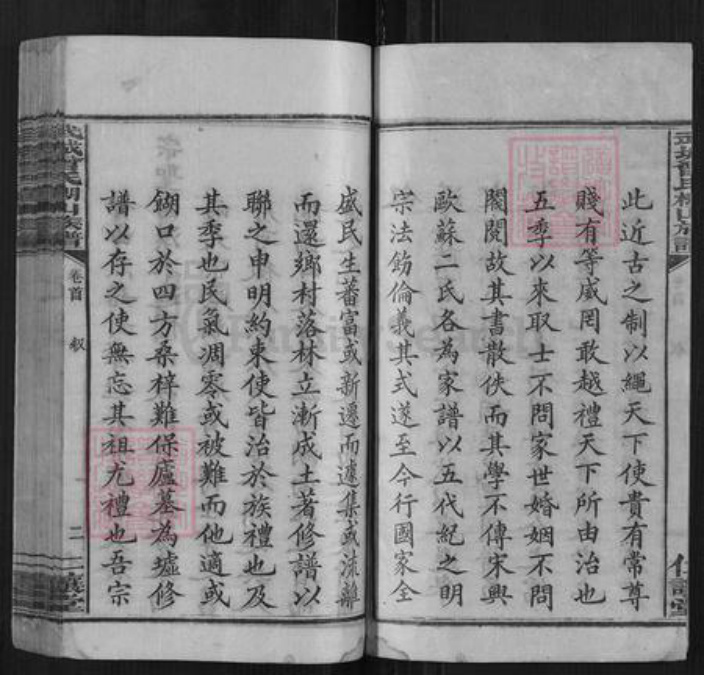 此近古之制以繩天下使貴有常尊
賤有等威罔敢越禮天下所由治也
五季以來取士不問家世婚姻不問
閥閱故其書散佚而其學不傳宋興
歐蘇二氏各為家譜以五代紀之明
宗法飭倫義其式遂至今行國家全
盛民生蕃富或新遷而遽集或流離
而還鄉村落林立漸成土著修譜以
聯之申明約束使皆治於族禮也及
其季也民氣凋零或被難而他適或
餬口於四方桑梓難保廬墓為墟修
譜以存之使無忘其祖尤禮也吾宗
武城曾氏 山族譜
卷首
敘
二